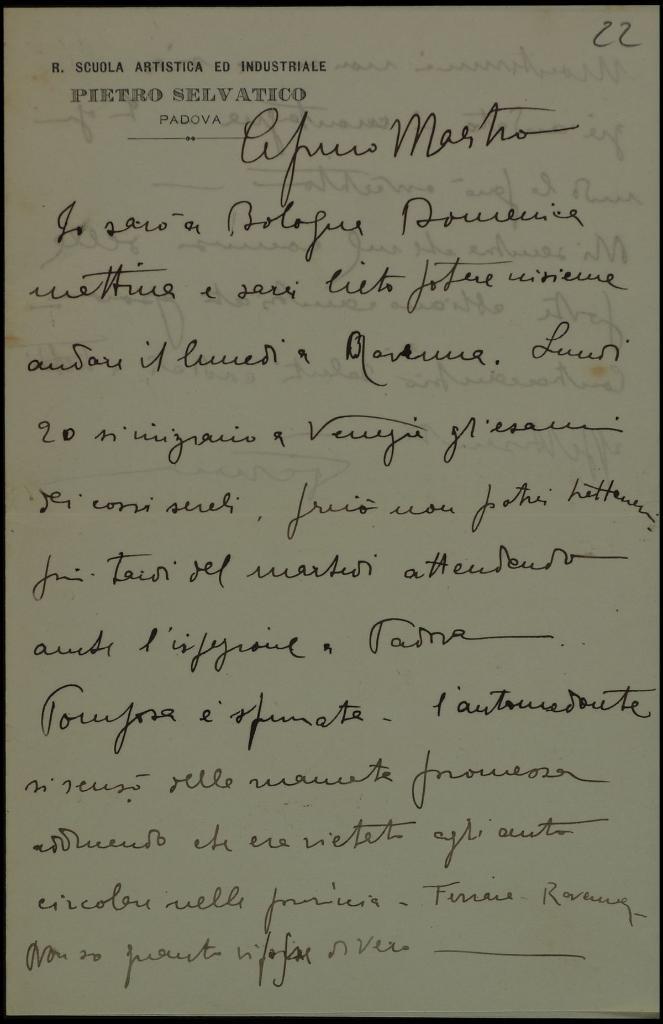 22
R. SCUOLA ARTISTICA ED INDUSTRIALE
PIETRO SELVATICO
PADOVA
Maestro
Io sarò a Bologna Domenica
mattina e sarei lieto potere insieme
andare il lunedi a Ravenna. Lunedi
20 si iniziano a Venezia gli esami
dei corsi serali, perciò non potrei trattenermi
più tardi del martedi attendendo
anche l'ispezione a Padova
Pomposa è sfumata - l'automedonte
si scusò della mancata promessa
adducendo che era vietato agli auto
circolare nella provincia - Ferrara - Ravenna -
Non so quanto vi sia di vero